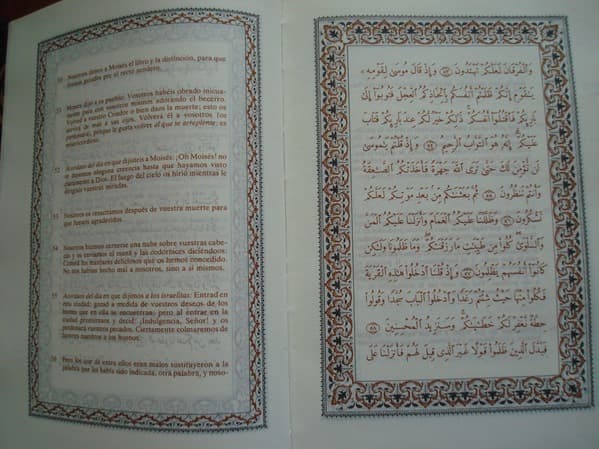 50 Nosotros dimos a Moisés el libro y la distinción, para que
fueseis guiados por el recto sendero.
51 Moisés dijo a su pueblo: Vosotros habéis obrado inicua-
mente para con vosotros mismos adorando el becerro.
Volved a vuestro Creador o bien daos la muerte; esto os
servirá de más a sus ojos. Volverá él a vosotros (os
perdonará), porque le gusta volver al que se arrepiente; es
misericordioso.
52 Acordaos del día en que dijisteis a Moisés: ¡Oh Moisés! no
te daremos ninguna creencia hasta que hayamos visto
claramente a Dios. El fuego del cielo os hirió mientras le
dirigíais vuestras miradas.
53 Nosotros os resucitamos después de vuestra muerte para
que fueseis agradecidos.
54 Nosotros hicimos cernerse una nube sobre vuestras cabe-
zas y os enviamos el maná y las codornices diciéndoos:
Comed los manjares deliciosos que os hemos concedido.
No nos habéis hecho mal a nosotros, sino a sí mismos.
55 Acordaos del día en que dijimos a los israelitas: Entrad en
esta ciudad; gozad a medida de vuestros deseos de los
bienes que en ella se encuentran; pero al entrar en la
ciudad prosternaos y decid: ¡Indulgencia, Señor! y os
perdonará vuestros pecados. Ciertamente colmaremos de
favores nuestros a los buenos.
56 Pero los que de entre ellos eran malos sustituyeron a la
palabra que les había sido indicada, otra palabra, y noso-
وَالْفُرْقَانَ لَعَلَّكُمْ تَهْتَدُونَ ﴿٥٣﴾ وَإِذْ قَالَ مُوسَىٰ لِقَوْمِهِ
يَٰقَوْمِ إِنَّكُمْ ظَلَمْتُمْ أَنْفُسَكُمْ بِاتِّخَاذِكُمُ الْعِجْلَ فَتُوبُوا إِلَىٰ
بَارِئِكُمْ فَاقْتُلُوا أَنْفُسَكُمْ ذَٰلِكُمْ خَيْرٌ لَكُمْ عِنْدَ بَارِئِكُمْ فَتَابَ
عَلَيْكُمْ إِنَّهُ هُوَ التَّوَّابُ الرَّحِيمُ ﴿٥٤﴾ وَإِذْ قُلْتُمْ يَٰمُوسَىٰ
لَنْ نُؤْمِنَ لَكَ حَتَّىٰ نَرَى اللَّهَ جَهْرَةً فَأَخَذَتْكُمُ الصَّٰعِقَةُ
وَأَنْتُمْ تَنْظُرُونَ ﴿٥٥﴾ ثُمَّ بَعَثْنَٰكُمْ مِنْ بَعْدِ مَوْتِكُمْ لَعَلَّكُمْ
تَشْكُرُونَ ﴿٥٦﴾ وَظَلَّلْنَا عَلَيْكُمُ الْغَمَامَ وَأَنْزَلْنَا عَلَيْكُمُ الْمَنَّ
وَالسَّلْوَىٰ كُلُوا مِنْ طَيِّبَٰتِ مَا رَزَقْنَٰكُمْ وَمَا ظَلَمُونَا وَلَٰكِنْ
كَانُوا أَنْفُسَهُمْ يَظْلِمُونَ ﴿٥٧﴾ وَإِذْ قُلْنَا ادْخُلُوا هَٰذِهِ الْقَرْيَةَ
فَكُلُوا مِنْهَا حَيْثُ شِئْتُمْ رَغَدًا وَادْخُلُوا الْبَابَ سُجَّدًا وَقُولُوا
حِطَّةٌ نَغْفِرْ لَكُمْ خَطَٰيَٰكُمْ وَسَنَزِيدُ الْمُحْسِنِينَ ﴿٥٨﴾
فَبَدَّلَ الَّذِينَ ظَلَمُوا قَوْلًا غَيْرَ الَّذِي قِيلَ لَهُمْ فَأَنْزَلْنَا عَلَى